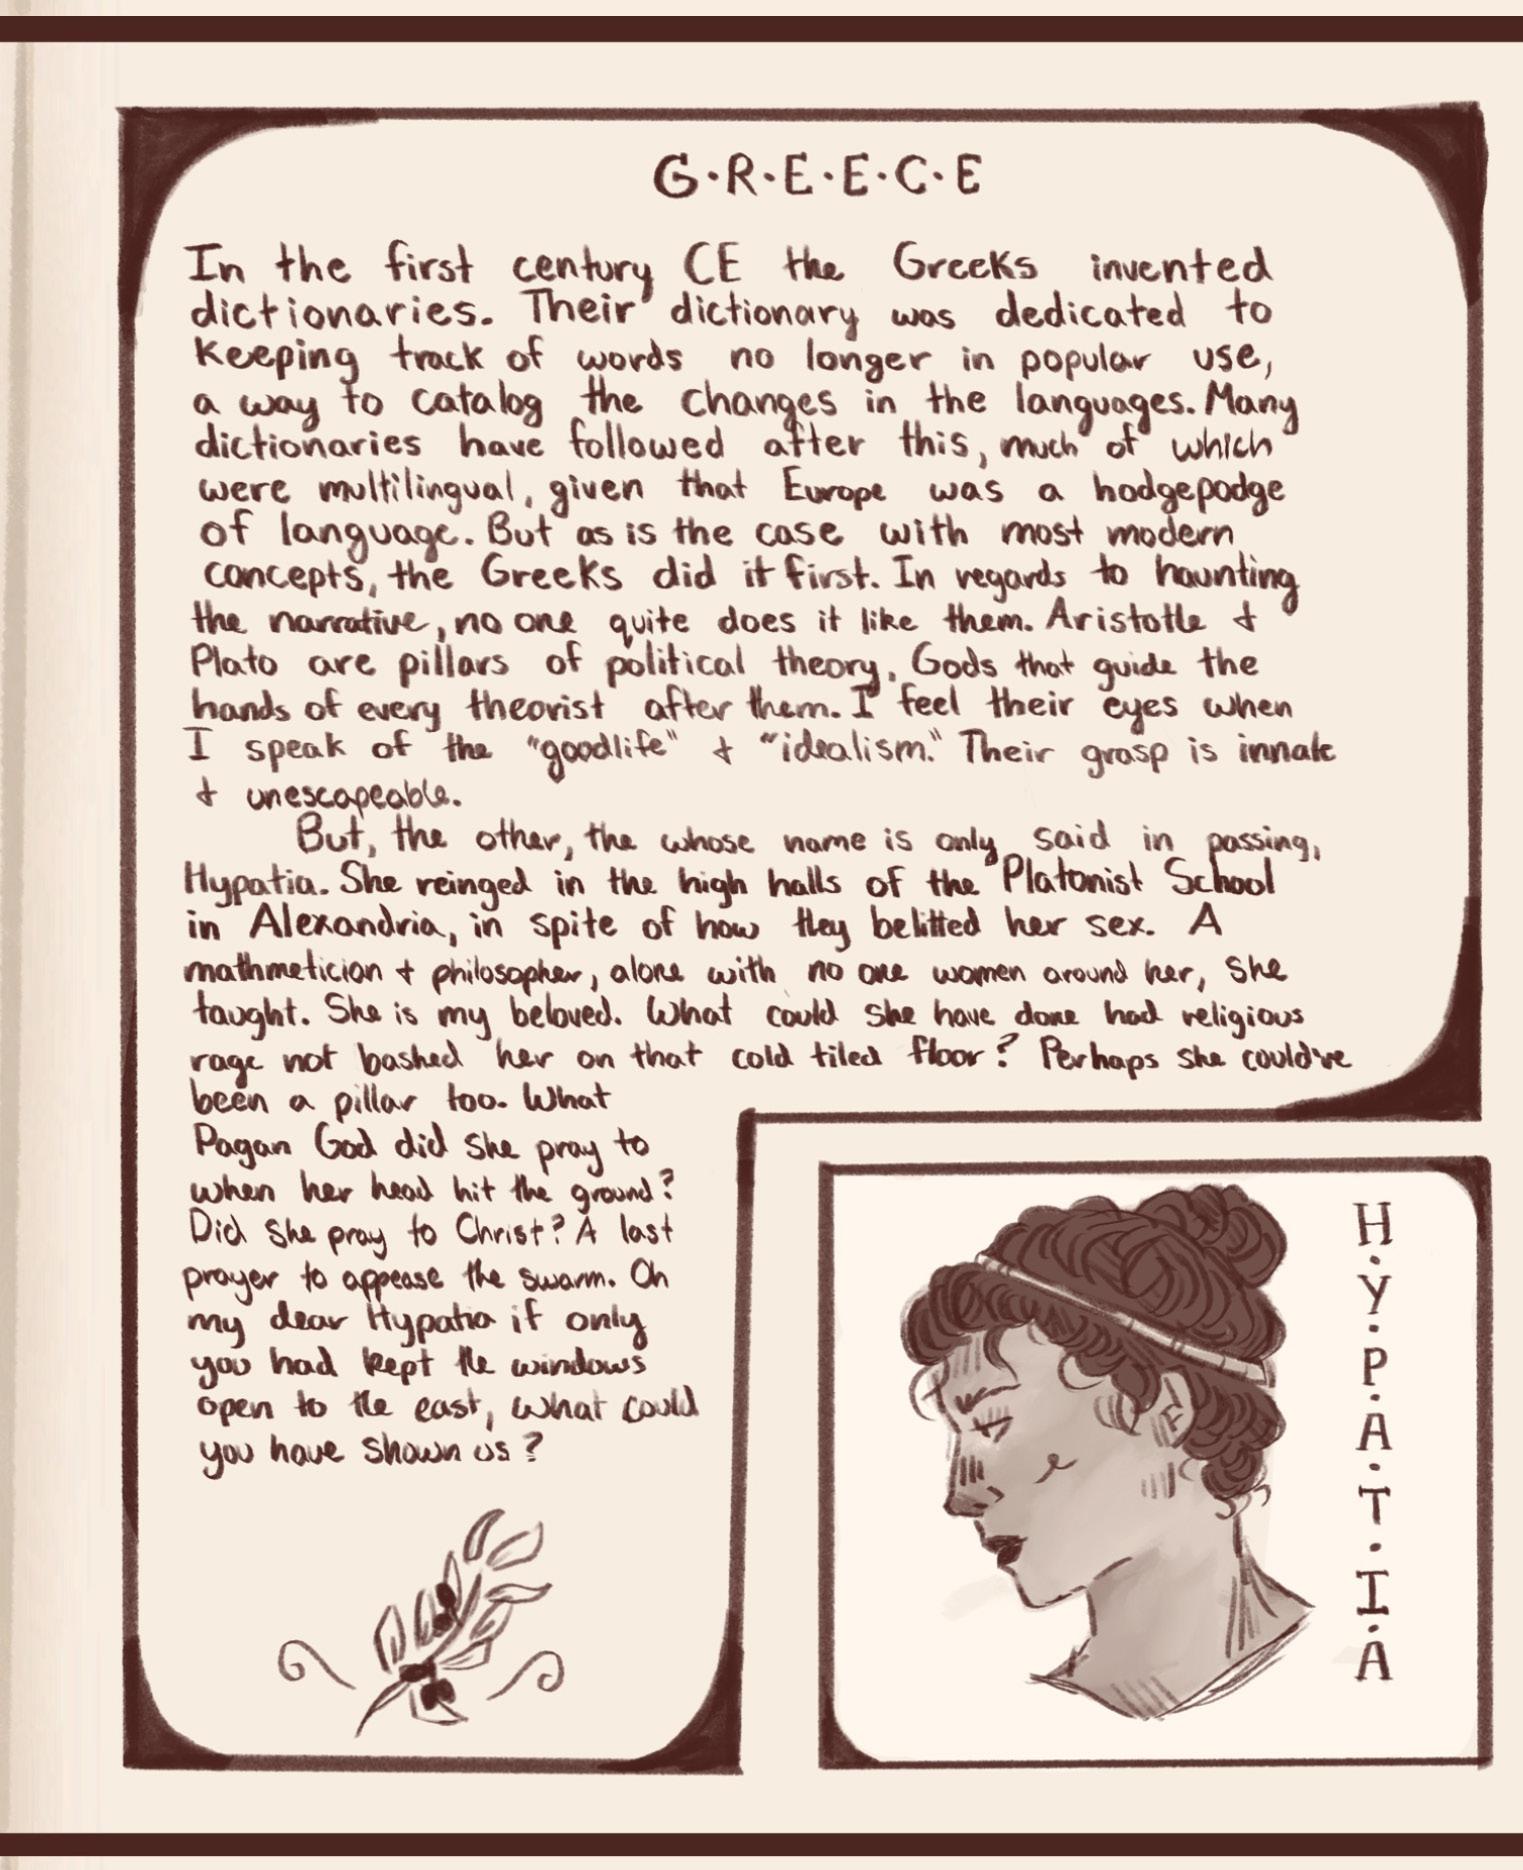 G·R·E·E·C·E
In the first century CE the Greeks invented
dictionaries. Their dictionary was dedicated to
keeping track of words no longer in popular use,
a way to catalog the changes in the languages. Many
dictionaries have followed after this, much of which
were multilingual, given that Europe was a hodgepodge
of language. But as is the case with most modern
concepts, the Greeks did it first. In regards to haunting
the narrative, no one quite does it like them. Aristotle +
Plato are pillars of political theory, Gods that guide the
hands of every theorist after them. I feel their eyes when
I speak of the "goodlife" + "idealism." Their grasp is innate
+ unescapeable.
But, the other, the whose name is only said in passing,
Hypatia. She reinged in the high halls of the Platonist School
in Alexandria, in spite of how they belitted her sex. A
mathmetician + philosopher, alone with no one women around her, she
taught. She is my beloved. What could she have done had religious
rage not bashed her on that cold tiled floor? Perhaps she could've
been a pillar too. What
Pagan God did she pray to
when her head hit the ground?
Did she pray to Christ? A last
prayer to appease the swarm. Oh
my dear Hypatia if only
you had kept the windows
open to the east, what could
you have shown us?
H·Y·P·A·T·I·A